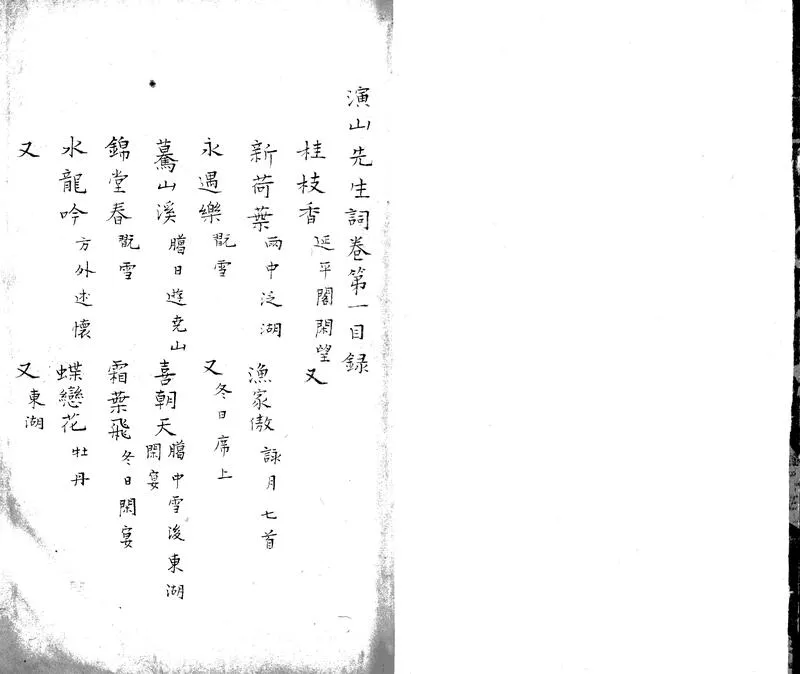 演山先生詞卷第一目録
桂枝香 延平閣閑望 又
新荷葉 雨中泛湖 漁家傲 詠月七首
永遇樂 翫雪 又 冬日席上
驀山溪 臈日遊尭山 喜朝天 臈中雪後東湖閑宴
錦堂春 翫雪 霜葉飛 冬日閑宴
水龍吟 方外述懷 蝶戀花 牡丹
又 又 東湖